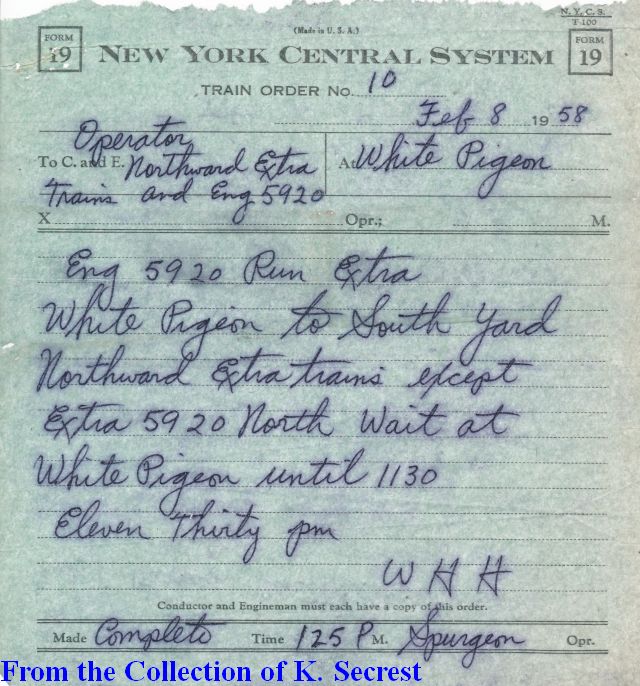 N.Y.C.S.
T-100
(Made in U. S. A.)
FORM
19
NEW YORK CENTRAL SYSTEM
FORM
19
TRAIN ORDER No. 10
Feb 8 1958
Operator
To C. and E. Northward Extra
Trains and Eng 5920
At White Pigeon
X Opr.; M.
Eng 5920 Run Extra
White Pigeon to South Yard
Northward Extra trains except
Extra 5920 North Wait at
White Pigeon until 1130
Eleven Thirty pm
W H H
Conductor and Engineman must each have a copy of this order.
Made Complete Time 125 P M. Spurgeon Opr.
From the Collection of K. Secrest